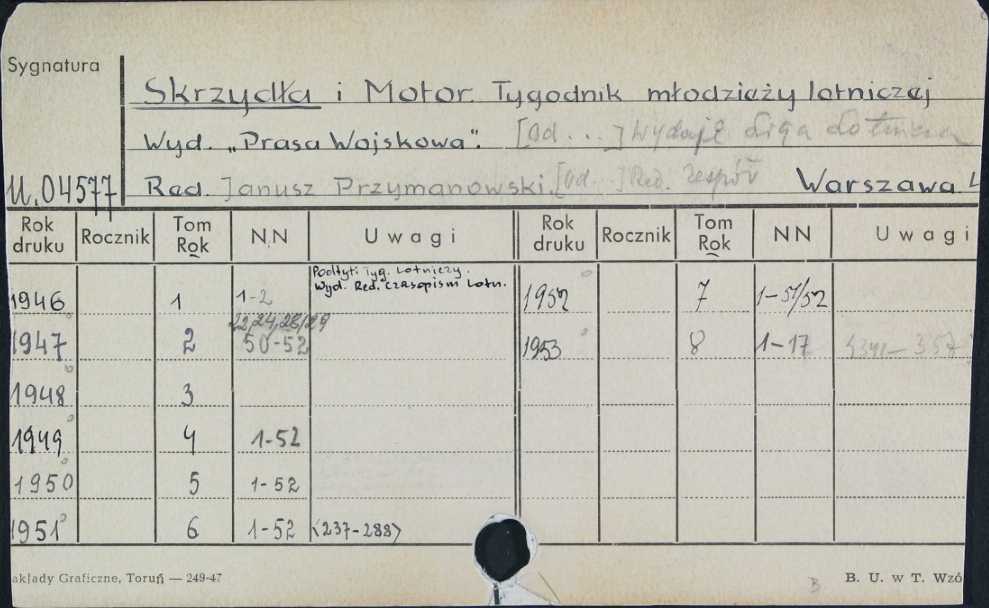 Sygnatura
Skrzydła i Motor. Tygodnik młodzieży lotniczej
Wyd. „Prasa Wojskowa". [Od ...] Wydaje Liga Lotnicza
U.04577 Red. Janusz Przymanowski. [od ..] Red. zespół Warszawa 4
Rok druku Rocznik Tom Rok NN Uwagi Rok druku Rocznik Tom Rok NN Uwagi
Podtyt: Tyg. Lotniczy.
1946 1 1-2 Wyd. Red. czasopism Lotn. 1952 7 1-51/52
22,24,28/29
1947 2 50-52 1953 8 1-17
1948 3
1949 4 1-52
1950 5 1-52
1951 6 1-52 <237-288>
akłady Graficzne, Toruń — 249-47 B B. U. w T. Wzó